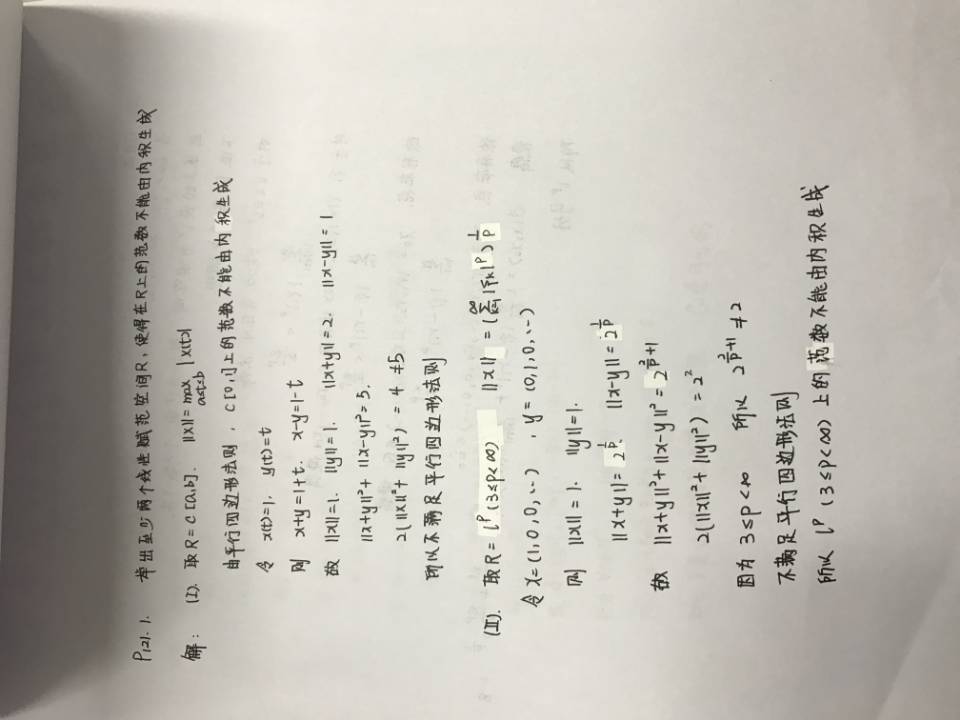 P121.1. 举出至少两个线性赋范空间R,使得在R上的范数不能由内积生成
解: (I). 取R=C[a,b]. ||x||=max_{a≤t≤b}|x(t)|
由平行四边形法则, C[0,1]上的范数不能由内积生成
令 x(t)=1. y(t)=t
则 x+y=1+t. x-y=1-t
故 ||x||=1. ||y||=1. ||x+y||=2. ||x-y||=1
||x+y||²+||x-y||²=5.
2(||x||²+||y||²)=4≠5
所以不满足平行四边形法则
(II). 取R=l^p(3≤p<∞) ||x||=(∑_{k=1}^{∞}|ξ_k|^p)^{1/p}
令x=(1,0,0,…), y=(0,1,0,…)
则 ||x||=1. ||y||=1.
||x+y||=2^{1/p}. ||x-y||=2^{1/p}
故 ||x+y||²+||x-y||²=2^{2/p+1}
2(||x||²+||y||²)=2²
因为 3≤p<∞ 所以 2^{2/p+1}≠2
不满足平行四边形法则
所以 l^p(3≤p<∞)上的范数不能由内积生成